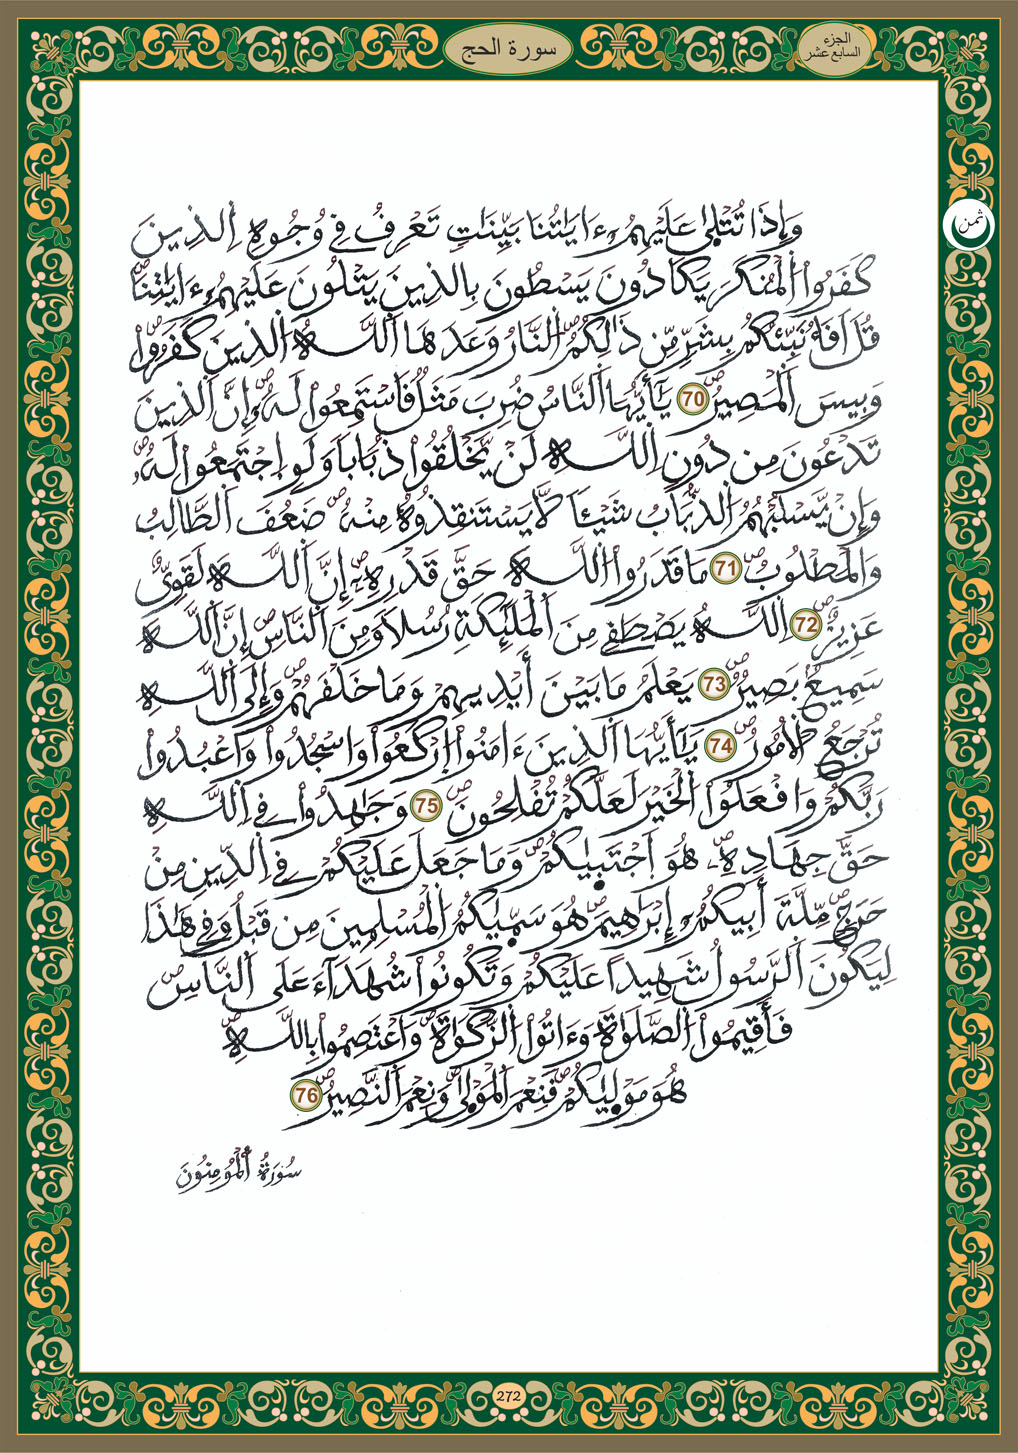 الجزء
السابع عشر
سورة الحج
ثمن
وَإِذَا تُتْلَىٰ عَلَيْهِمُۥٓ ءَايَٰتُنَا بَيِّنَٰتٖ تَعْرِفُ فِے وُجُوهِ اِ۬لذِينَ
كَفَرُواْ اُ۬لْمُنكَرَ يَكَادُونَ يَسْطُونَ بِالذِينَ يَتْلُونَ عَلَيْهِمُۥٓ ءَايَٰتِنَا
قُلَ اَفَأُنَبِّئُكُم بِشَرّٖ مِّن ذَٰلِكُمُ اُ۬لنَّارُ وَعَدَهَا اَ۬للَّهُ اُ۬لذِينَ كَفَرُواْ
وَبِيسَ اَ۬لْمَصِيرُ 70 يَٰٓأَيُّهَا اَ۬لنَّاسُ ضُرِبَ مَثَلٞ فَاسْتَمِعُواْ لَهُۥٓ إِنَّ اَ۬لذِينَ
تَدْعُونَ مِن دُونِ اِ۬للَّهِ لَنْ يَّخْلُقُواْ ذُبَاباٗ وَلَوِ اِ۪جْتَمَعُواْ لَهُۥ
وَإِنْ يَّسْلُبْهُمُ اُ۬لذُّبَابُ شَيْـٔاٗ لَّا يَسْتَنقِذُوهُ مِنْهُ ضَعُفَ اَ۬لطَّالِبُ
وَالْمَطْلُوبُ 71 مَا قَدَرُواْ اُ۬للَّهَ حَقَّ قَدْرِهِۦٓ إِنَّ اَ۬للَّهَ لَقَوِيٌّ
عَزِيزٌ 72 اِ۬للَّهُ يَصْطَفِے مِنَ اَ۬لْمَلَٰٓئِكَةِ رُسُلاٗ وَمِنَ اَ۬لنَّاسِ إِنَّ اَ۬للَّهَ
سَمِيعُۢ بَصِيرٞ 73 يَعْلَمُ مَا بَيْنَ أَيْدِيهِمْ وَمَا خَلْفَهُمْ وَإِلَى اَ۬للَّهِ
تُرْجَعُ اُ۬لُامُورُ 74 يَٰٓأَيُّهَا اَ۬لذِينَ ءَامَنُواْ اُ۪رْكَعُواْ وَاسْجُدُواْ وَاعْبُدُواْ
رَبَّكُمْ وَافْعَلُواْ اُ۬لْخَيْرَ لَعَلَّكُمْ تُفْلِحُونَ 75 وَجَٰهِدُواْ فِے اِ۬للَّهِ
حَقَّ جِهَادِهِۦ هُوَ اَ۪جْتَبٜيٰكُمْ وَمَا جَعَلَ عَلَيْكُمْ فِے اِ۬لدِّينِ مِنْ
حَرَجٖ مِّلَّةَ أَبِيكُمُۥٓ إِبْرَٰهِيمَ هُوَ سَمّٜيٰكُمُ اُ۬لْمُسْلِمِينَ مِن قَبْلُ وَفِے هَٰذَا
لِيَكُونَ اَ۬لرَّسُولُ شَهِيداً عَلَيْكُمْ وَتَكُونُواْ شُهَدَآءَ عَلَى اَ۬لنَّاسِ
فَأَقِيمُواْ اُ۬لصَّلَوٰةَ وَءَاتُواْ اُ۬لزَّكَوٰةَ وَاعْتَصِمُواْ بِاللَّهِ
هُوَ مَوْلٜيٰكُمْ فَنِعْمَ اَ۬لْمَوْلٜيٰ وَنِعْمَ اَ۬لنَّصِيرُ 76
سُورَةُ اُ۬لْمُومِنُونَ
272